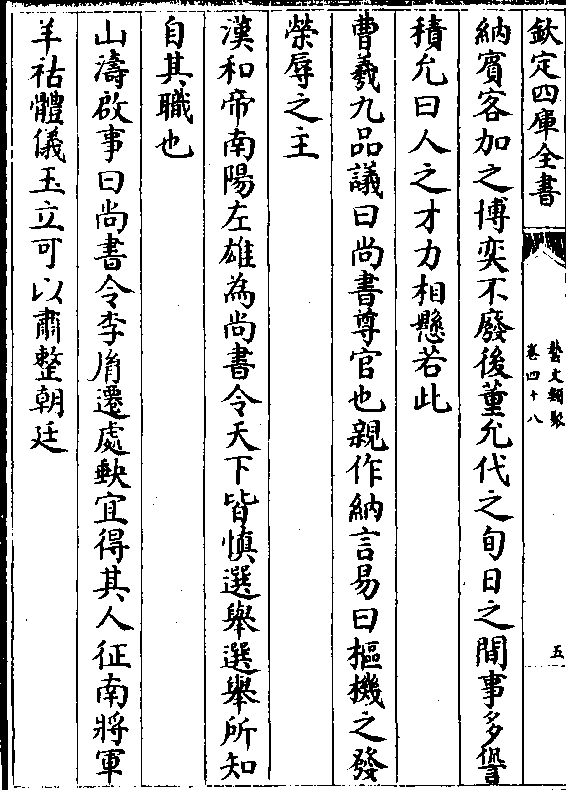 欽定四庫全書
藝文類聚
卷四十八
五
納賓客加之博奕不廢後董允代之旬日之間事多愆
積允曰人之才力相懸若此
曹羲九品議曰尚書尊官也親作納言易曰樞機之發
榮辱之主
漢和帝南陽左雄為尚書令天下皆慎選舉選舉所知
自其職也
山濤啟事曰尚書令李胤遷處缺宜得其人征南將軍
羊祜體儀玉立可以肅整朝廷